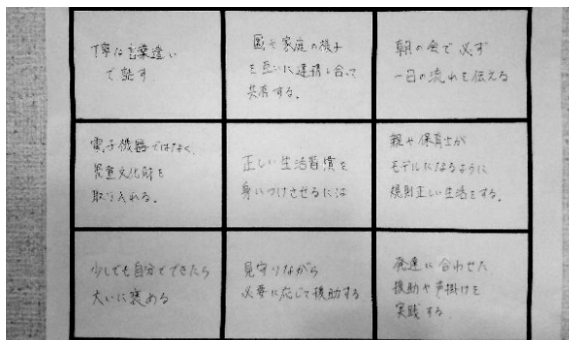 丁寧な言葉遣い
で話す
園や家庭の様子
を互いに連携し合って
共有する。
朝の会で必ず
一日の流れを伝える
電子機器ではなく、
児童文化財を
取り入れる。
正しい生活習慣を
身につけさせるには
親や保育士が
モデルになるように
規則正しい生活をする。
少しでも自分でできたら
大いに褒める
見守りながら
必要に応じて援助する
発達に合わせた
援助や声掛けを
実践する